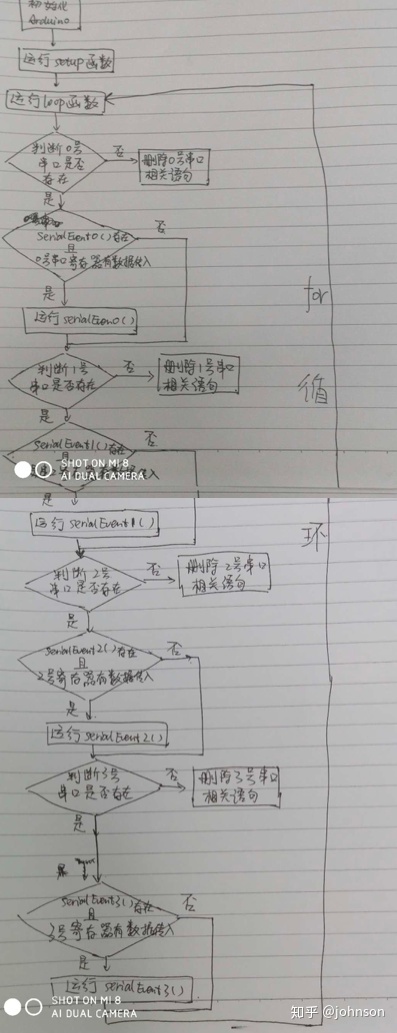 初始化
Arduino
运行 setup函数
运行loop函数
判断0号
串口是否
存在
否
删除0号串口
相关语句
是
serialEvent0()存在
且
0号串口寄存器有数据传入
否
是
运行serialEvent0()
判断1号
串口是否存在
否
删除1号串口
相关语句
是
serialEvent1()存在
且
否
SHOT ON MI 8
AI DUAL CAMERA
for
循
环
是
运行 serialEvent1()
判断2号
串口是否存在
否
删除2号串口
相关语句
是
serialEvent2()存在
且
2号寄存器有数据传入
否
是
运行serialEvent2()
判断3号
串口是否存在
否
删除3号串口
相关语句
是
serialEvent3()存在
且
3号寄存器有数据传入
否
是
运行 serialEvent3()
SHOT ON MI 8
AI DUAL CAMERA
知乎 @johnson